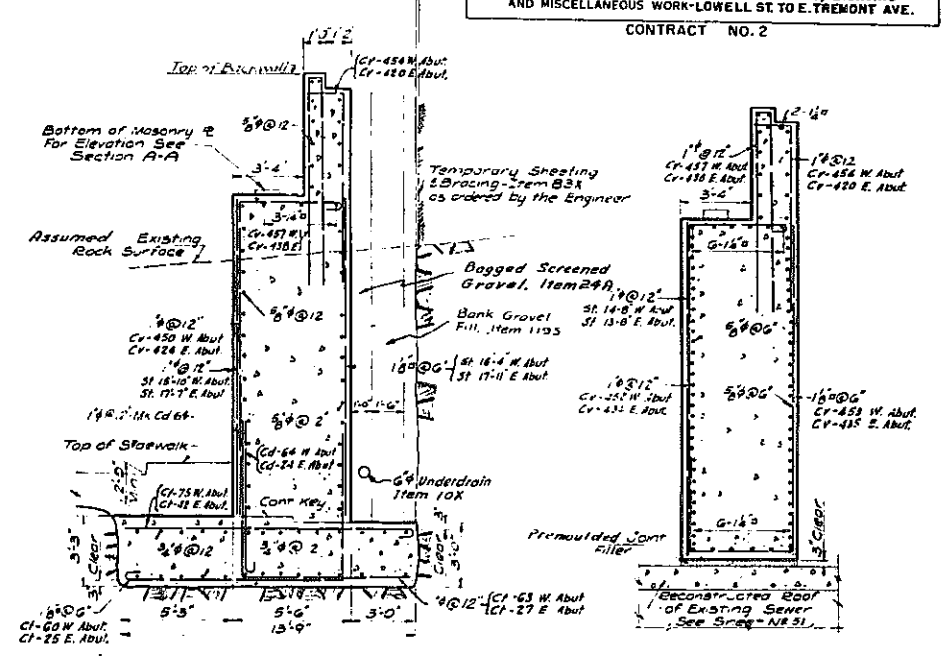 AND MISCELLANEOUS WORK-LOWELL ST. TO E. TREMONT AVE.
CONTRACT NO. 2
Top of Backwall
Cv-454 W. Abut.
Cv-420 E. Abut.
5/8"ϕ@12
Bottom of Masonry ℄
For Elevation See
Section A-A
3'-4"
Temporary Sheeting
& Bracing-Item 83X
as ordered by the Engineer
Cv-457 W.
Cv-438 E.
Assumed Existing
Rock Surface
Bagged Screened
Gravel, Item 24A
Bank Gravel
Fill, Item 119S
5/8"ϕ@12
1"ϕ@12"
Cv-450 W. Abut
Cv-424 E. Abut.
1"ϕ@12"
St 18'-10" W. Abut
St. 17'-7" E. Abut.
St 16'-4" W. Abut
St 17'-11" E. Abut
1'-0" 1'-6"
Mk Cd 64
5/8"ϕ@ 2"
Top of Sidewalk
2'-0"
Min.
Cd-64 W. Abut
Cd-24 E. Abut.
6"ϕ Underdrain
Item 10X
Cf-75 W. Abut.
Cf-42 E. Abut.
Cont Key
3'-3"
3" Clear
3/4"ϕ@12
3/4"ϕ@ 2
3" Clear
3'-0"
Cf-60 W. Abut
Cf-25 E. Abut.
5'-3"
5'-6"
3'-0"
13'-9"
Cf-63 W. Abut
Cf-27 E. Abut
1"ϕ@12"
Cv-457 W. Abut
Cv-438 E. Abut.
3'-4"
1"ϕ@12
Cv-454 W. Abut
Cv-420 E. Abut
1"ϕ@12"
St. 14'-8" W. Abut
St 13'-8" E. Abut.
5/8"ϕ@6"
1"ϕ@12"
5/8"ϕ@6"
Cv-453 W. Abut.
Cv-435 E. Abut.
Premoulded Joint
Filler
3" Clear
Reconstructed Roof
of Existing Sewer
See Sheet Nº 51